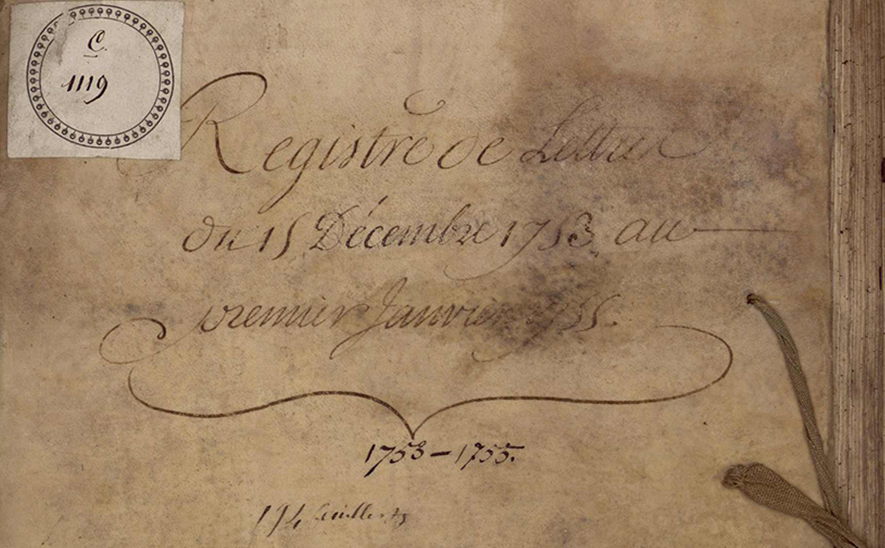 C.
1119
Registre de Lettres
du 15 Décembre 1753 au
premier Janvier 1755.
1753 - 1755.
194 feuillets